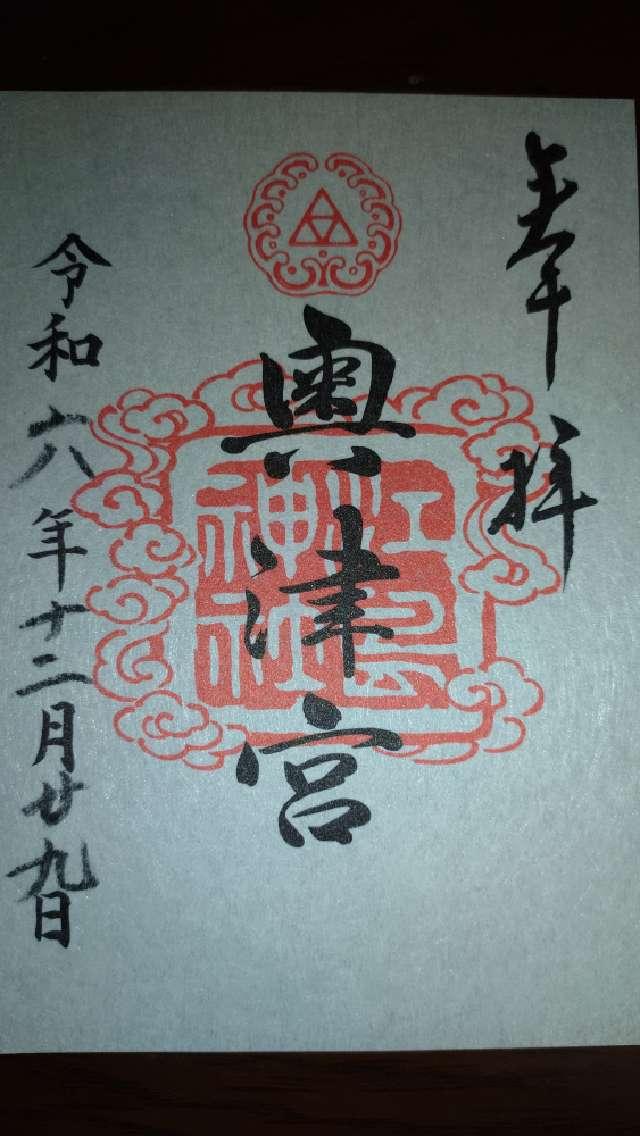 奉拝
奥津宮
江島
神社
令和六年十二月廿九日